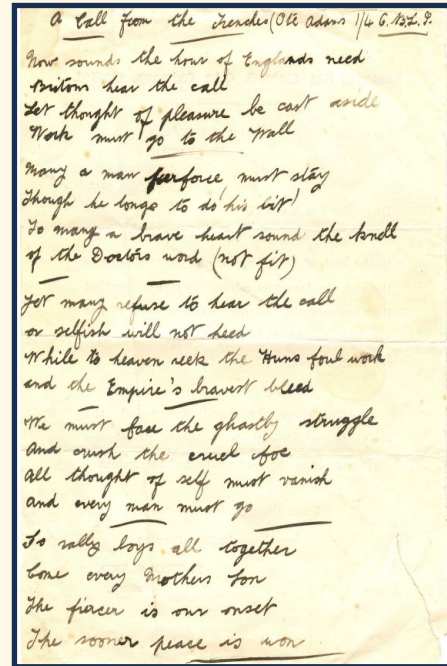 A Call from the Trenches (Pte Adams 1/4 C.B.L.I.
Now sounds the hour of Englands need
Britons hear the call
Let thought of pleasure be cast aside
Work must go to the Wall
Many a man perforce must stay
Though he longs to do 'his bit'
To many a brave heart sound the knell
of the Doctors word (not fit)
Yet many refuse to hear the call
or selfish will not heed
While to heaven reek the Huns foul work
and the Empire's bravest bleed
We must face the ghastly struggle
And crush the cruel foe
All thought of self must vanish
And every man must go
So rally boys all together
Come every Mothers Son
The fiercer is our onset
The sooner peace is won